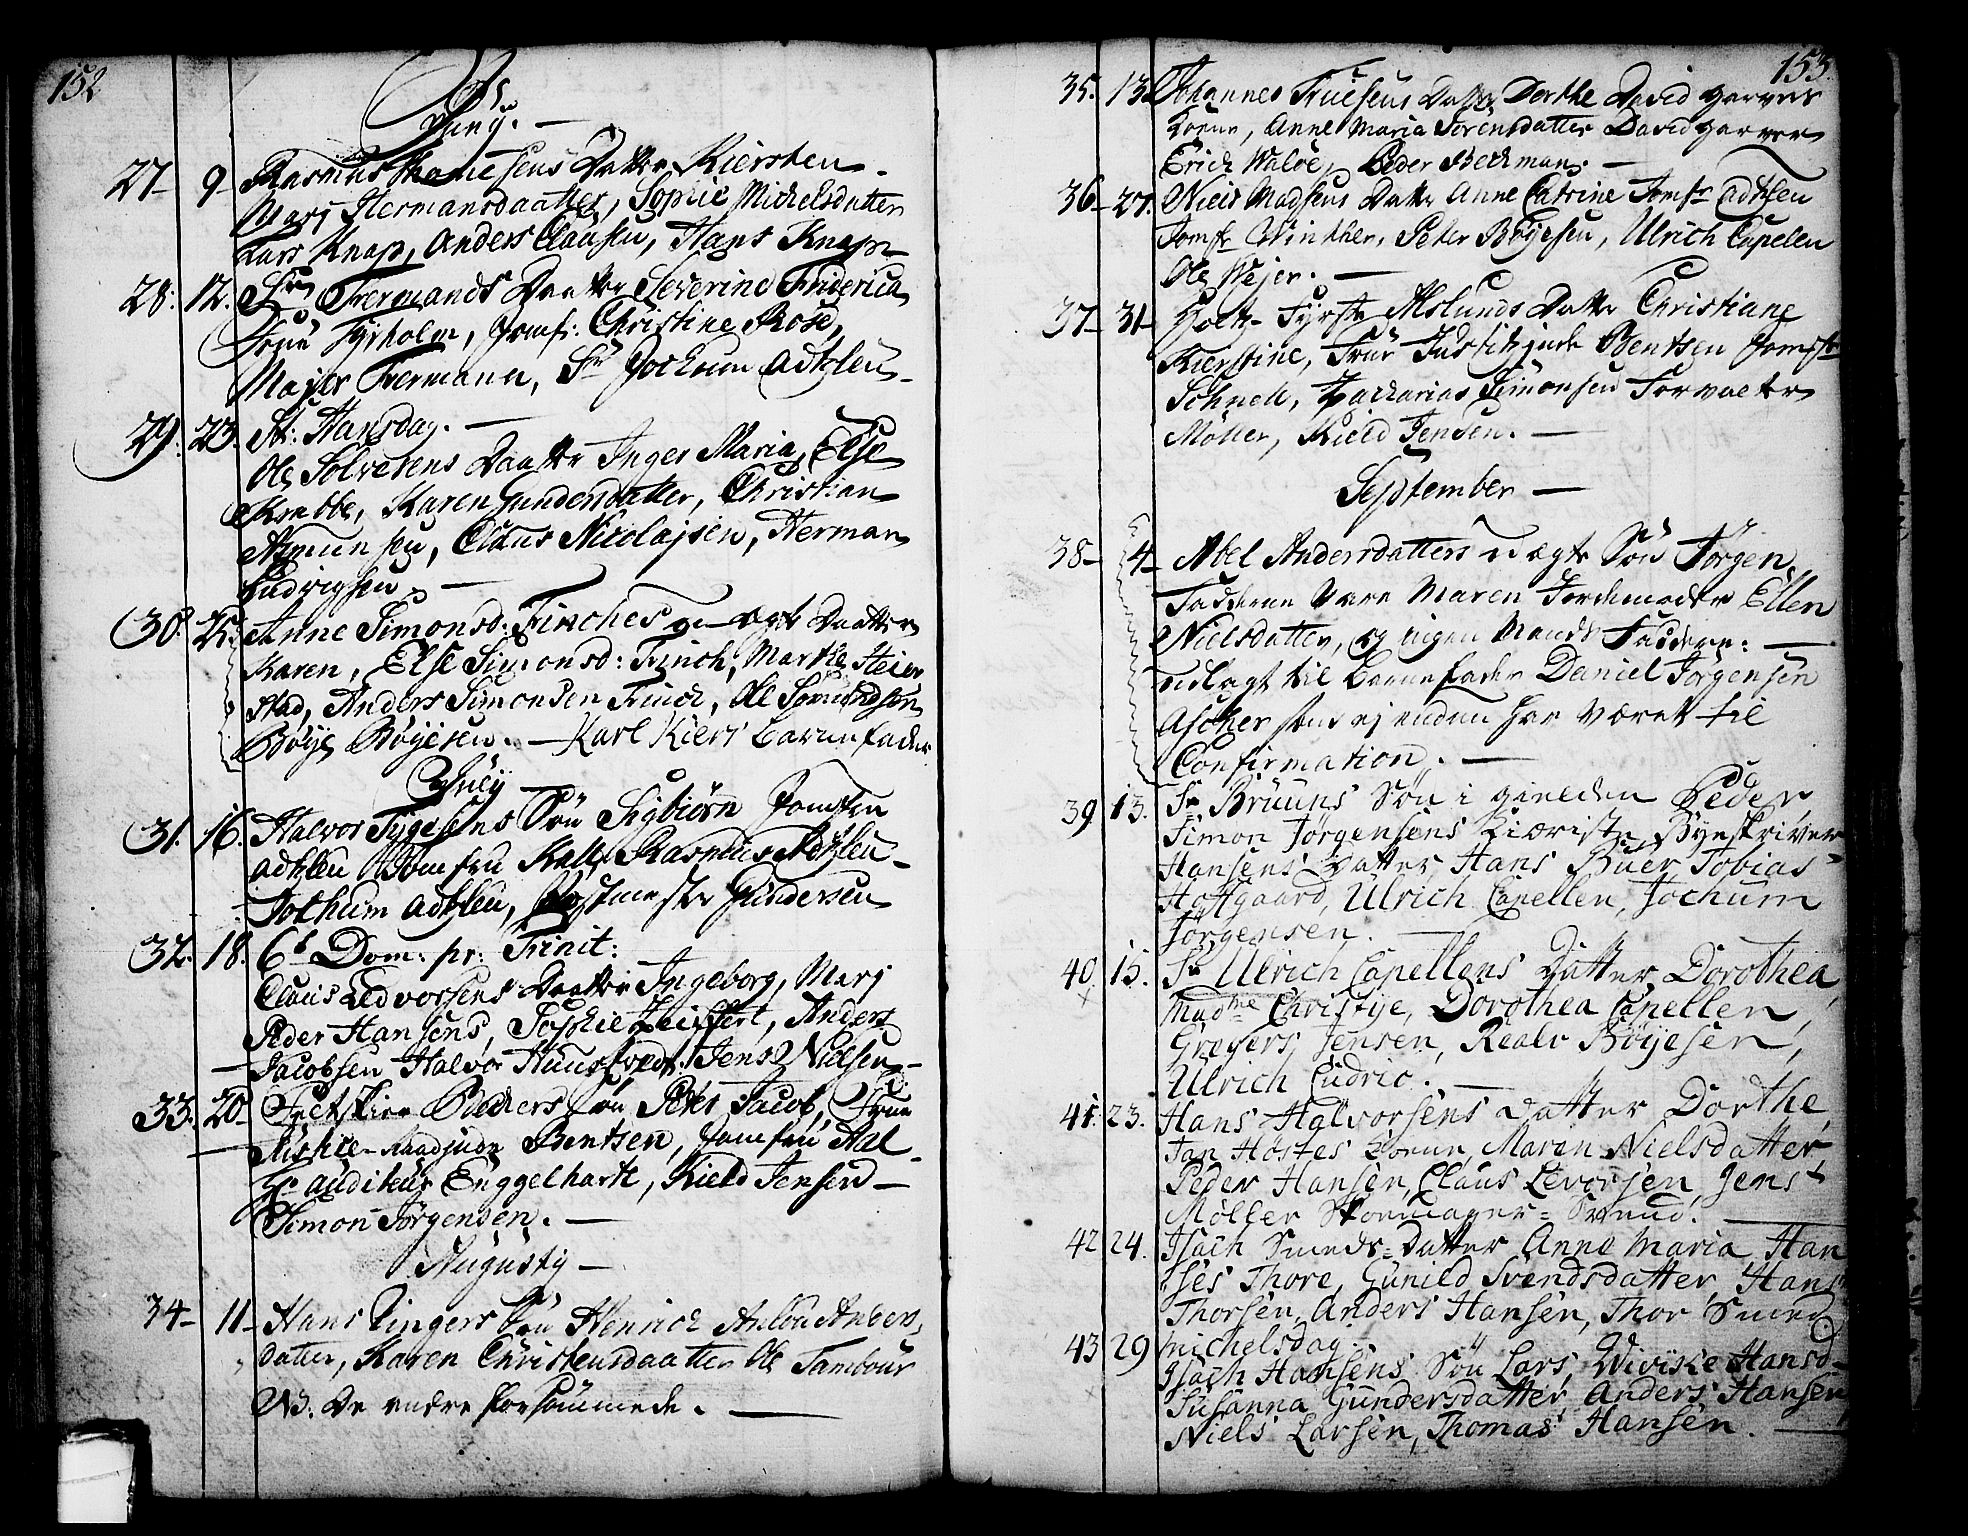 152
Juny.
27 - 9 Rasmus Thomesens Datter Kiersten
Marj Hermansdaatter, Sophie Michelsdatter
Lars Knap, Anders Clausen, Hans Knap
28. 12. Sr Fermands Daatter Severine Friderica
Frue Tyrholm, Jomf: Christine Rose,
Majer Fermann, Sr Jochum Adtzleu
29. 23. St: Hansdag.
Ole Solvesens Daatter Inger Maria, Else
Krabbe, Karen Gundersdatter, Christian
Asmunsen, Claus Nicolajsen, Herman
Ludvigsen
30. 25. Anne Simonsd: Finches u-ægte Daatter
Karen, Else Simonsd: Finch, Marthe Heier
stad, Anders Simonsen Finch, Ole Somundsen
Böye Böyesen. - Karl Kiers Barnefader
July
31. 16. Halvor Tygesens Sön Sigbiörn Jomfru
Adtzleu Jomfru Kall, Rasmus Adtzleu
Jothum Adtzleu, Postmester Gundersen
32. 18. 6t Dom: pr: Trinit:
Claus Ledvorsens Daatter Ingeborg, Marj
Peder Hansens, Sophie Zeiffert, Anders
Jacobsen Halvor Jens Nielsen
33. 20 Sön Peter Jacob, Frue
Bentsen, Jomfru Aal
Hr Auditeur Enggelhart, Kield Jensen
Simon Jörgensen.
Augusty
34 - 11 - Hans Ringers Sön Henrich Anders
datter, Karen Christensdaatter Ole Tambour
NB. De andre forsömmede.
153.
35. 13. Johannes Truesens Datter Dorthe David Garvers
Kone, Anne Maria Sörensdatter David Garver
Erich Waloe, Peder Beckman.
36 - 27. Niels Madsens Datter Anne Catrine Jomfr Adtzleu
Jomfr Winther, Peter Böyesen, Ulrich Capelen
Ole Wejer.
37 - 31 - Aslunds Datter Christiane
Kierstine, Frue Justitzjude Bentsen Jomfr
Schnell, Zacharias Simonsen Forvalter
Möller, Kield Jensen.
September
38 - 4 - Abel Andersdatters uægte Sön Jörgen,
Fadderne Vare Maren Jordemoder Ellen
Nielsdatter, og ingen Mands Faddere.
udlagt til Barnefader Daniel Jörgensen
Ascher som ej endnu har været til
Confirmation.
39 13. Sr Bruuns Sön i gielden Peder
Simon Jörgensens Kiæriste Byeskriver
Hansens Datter, Hans Buer, Tobias
Hoffgaard, Ulrich Capellen, Jochum
Jörgensen.
40. 15. Sr Ulrich Capellens Datter Dorothea,
Madme Christije, Dorothea Capellen,
Gregers Jensen, Realv Böyesen,
Ulrich Cudrio.
41. 23. Hans Halvorsens Datter Dorthe,
Jan Höstes Konne, Maren Nielsdatter
Peder Hansen, Claus Levorsen, Jens
Möller Skoemager = Svend.
42 24. Isach Smeds = Datter Anne Maria, Han
ses Thore, Gunild Svendsdatter, Hans
Thorsen, Anders Hansen, Thor Smed
43 29 Michelsdag.
Isach Hansens Sön Lars, Wiviske Hansd-
Susanna Gundersdatter, Anders Hansen
Niels Larsen, Thomas Hansen.